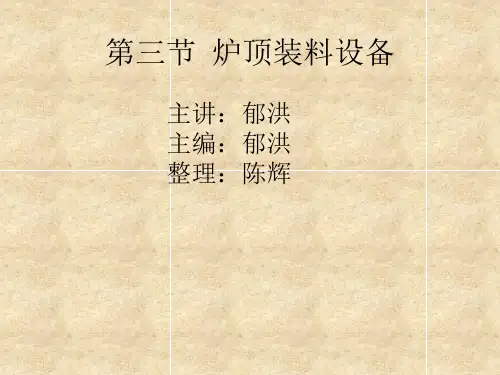 第三节 炉顶装料设备
主讲：郁洪
主编：郁洪
整理：陈辉